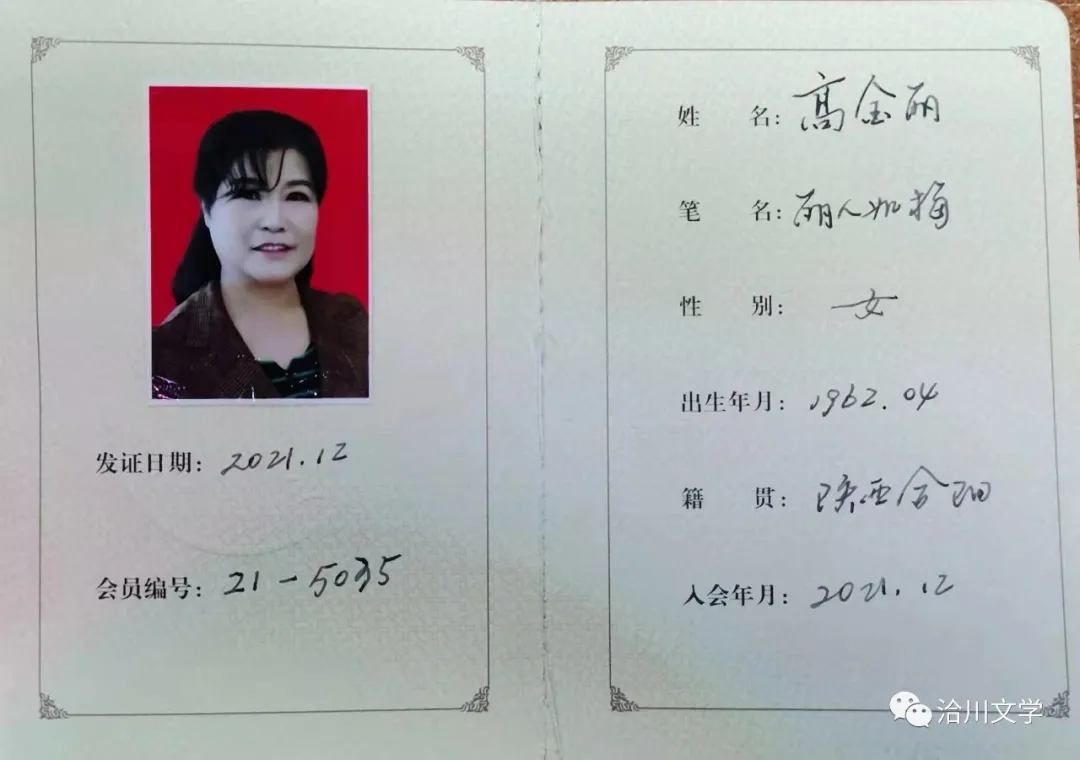 发证日期：2021.12
会员编号：21-5035
姓 名：高金丽
笔 名：丽人如梅
性 别：女
出生年月：1962.04
籍 贯：陕西合阳
入会年月：2021.12
洽川文学